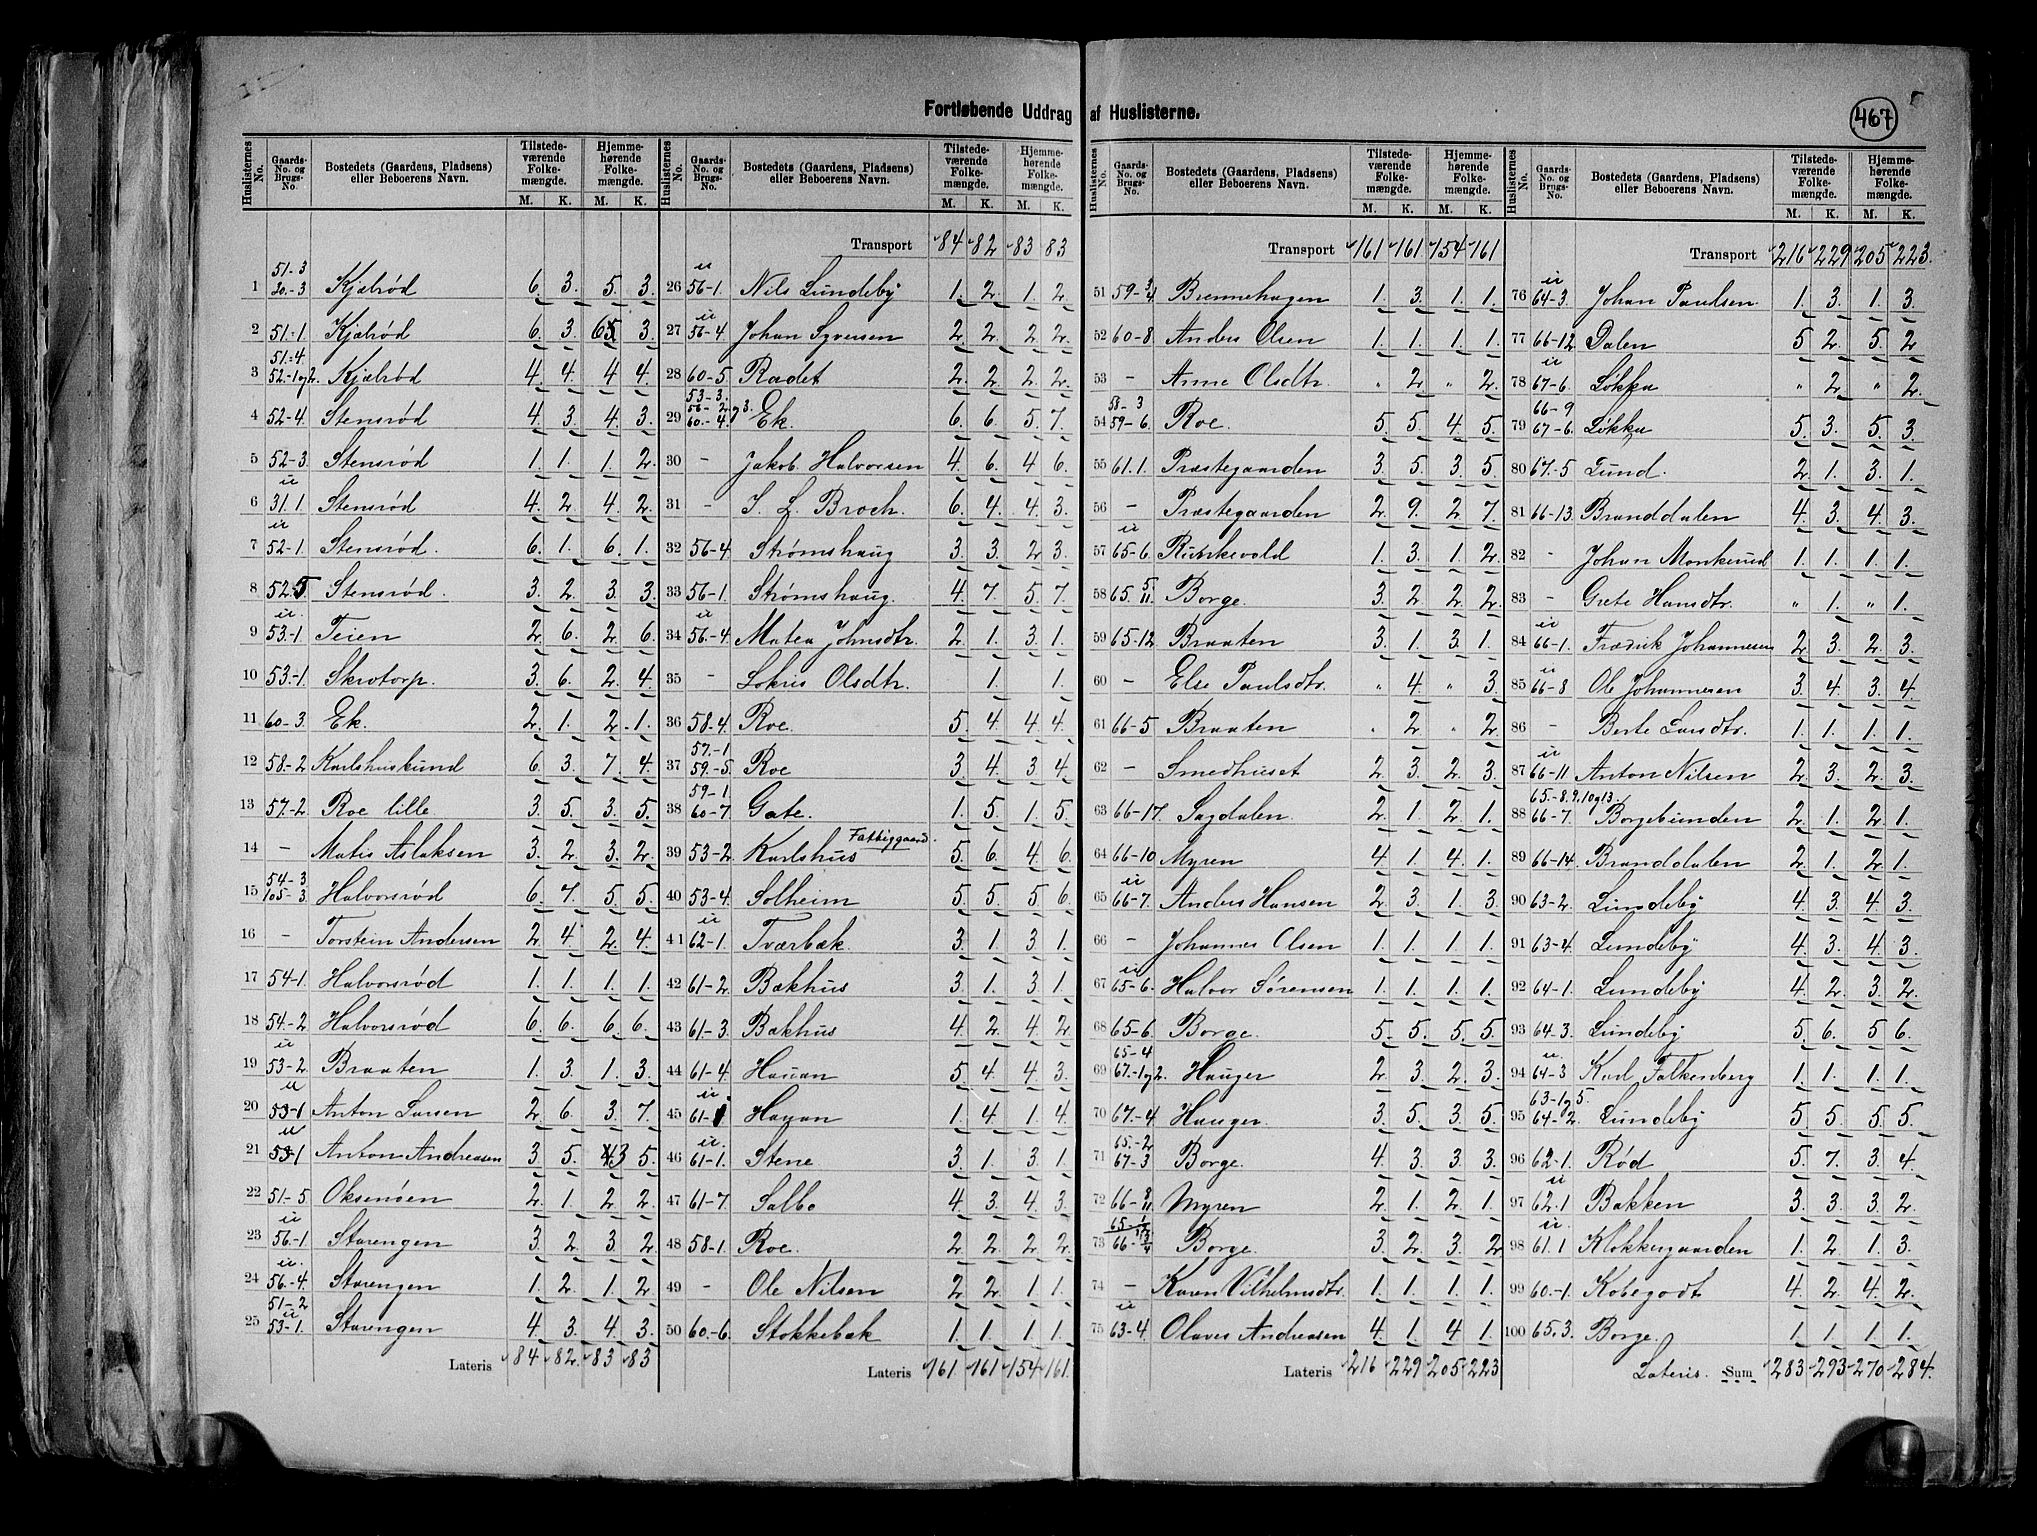 467
Fortløbende Uddrag af Huslisterne.
Huslisternes No. Gaards-No. og Brugs-No. Bostedets (Gaardens, Pladsens) eller Beboerens Navn. Tilstedeværende Folkemængde. M. K. Hjemmehørende Folkemængde. M. K.
1 51-3 20-3 Kjølrød 6. 3. 5. 3.
2 51-1 Kjølrød 6. 3. 5 3.
3 51-4. 52-1 og 2. Kjølrød 4. 4. 4 4.
4 52-4. Stensrød 4. 3. 4. 3.
5 52-3. Stensrød 1. 1. 1. 2.
6 u 31.1 Stensrød 4. 2. 4. 2.
7 u 52-1. Stensrød. 6. 1. 6. 1.
8 52-5 Stensrød. 3. 2. 3. 3.
9 u 53-1 Teien 2. 6. 2. 6.
10 53-1. Skrotorp. 3. 6. 2. 4.
11 60-3. Ek. 2. 1. 2. 1.
12 58-2 Karlshuskund 6. 3. 7. 4.
13 57-2. Roe lille 3. 5. 3. 5.
14 - Matis Aslaksen 3. 2. 3. 2.
15 54-3 105-3 Halvorsrød 6. 7. 5. 5.
16 - Torstein Andersen 2. 4. 2. 4.
17 54-1. Halvorsrød 1. 1. 1. 1.
18 54-2. Halvorsrød 6. 6. 6. 6.
19 u 53-2 Braaten 1. 3. 1. 3.
20 u 53-1 Anton Larsen 2. 6. 3. 7.
21 u 53-1 Anton Andreasen 3 5. 3 5.
22 51-5 Oksenøen 2. 1. 2. 2.
23 u 56-1 Starengen 3. 2. 3. 2.
24 u. 56-4. Starengen 1. 2. 1. 2
25 51-2 u 53-1. Starengen 4. 3. 4. 3.
Lateris 84 82. 83 83
Huslisternes No. Gaards-No. og Brugs-No. Bostedets (Gaardens, Pladsens) eller Beboerens Navn. Tilstedeværende Folkemængde. M. K. Hjemmehørende Folkemængde. M. K.
Transport 84 82 83 83
26 u 56-1. Nils Lundeby 1. 2. 1. 2.
27 u 56-4 Johan Syversen 2. 2. 2. 2.
28 60-5 Rædet 2. 2. 2. 2.
29 53-3. 56-2 og 3. 60-4. Ek. 6. 6. 5. 7.
30 - Jakob Halvorsen 4. 6. 4 6.
31 - S. L. Broch. 6. 4. 4. 3.
32 56-4 Strømshaug 3. 3. 2. 3.
33 56-1. Strømshaug. 4. 7. 5. 7.
34 u 56-4. Matea Johnsdtr. 2. 1. 3. 1.
35 - Lokris Olsdtr. 1. 1.
36 58-4. Roe. 5. 4. 4. 4.
37 57-1 59-5. Roe 3. 4. 3. 4.
38 59-1. 60-7 Gate. 1. 5. 1. 5.
39 53-2. Karlshus Fattiggaard. 5. 6. 4. 6.
40 53-4. Solheim 5. 5. 5. 6.
41 u 62-1. Tværbæk. 3. 1. 3 1.
42 61-2. Bækhus 3. 1. 3. 1.
43 61-3. Bækhus 4. 2. 4. 2
44 61-4. Hauan 5. 4. 4. 3.
45 u. 61-1 Hauan 1. 4. 1. 4.
46 u. 61-1. Stene 3. 1. 3. 1
47 61-7. Salbo 4. 3. 4. 3.
48 58-1. Roe. 2. 2. 2. 2.
49 - Ole Nilsen 2. 2. 1. 1.
50 60-6. Stokkebæk 1. 1. 1. 1.
Lateris 161. 161 154 161.
Huslisternes No. Gaards-No. og Brugs-No. Bostedets (Gaardens, Pladsens) eller Beboerens Navn. Tilstedeværende Folkemængde. M. K. Hjemmehørende Folkemængde. M. K.
Transport 161 161 154 161
51 59-3/4 Brennehagen 1. 3. 1. 1.
52 60-8 Anders Olsen 1. 1. 1. 1.
53 - Anne Olsdtr. " 2. " 2.
54 58-3 59-6. Roe. 5. 5. 4. 5.
55 61.1. Præstegaarden 3. 5. 3. 5
56 - Præstegaarden 2. 9. 2. 7.
57 u 65-6. Runkevold 1. 3. 1. 2.
58 65. 5/11. Borge. 3. 2. 2. 2.
59 65-12. Braaten 3. 1. 3. 1.
60 - Else Paulsdtr. " 4. " 3.
61 66-5 Braaten " 2. " 2.
62 - Smedhuset 2. 3. 2. 3.
63 66-17. Sagdalen 2. 1. 2. 1.
64 66-10 Myren 4. 1. 4. 1.
65 u 66-7. Anders Hansen 2. 3. 1. 3.
66 - Johannes Olsen 1. 1. 1. 1.
67 u 65-6. Halvor Sørensen 1. 1. 1. 1.
68 65-6. Borge. 5. 5. 5. 5.
69 65-4 67-1 og 2. Hauger 2. 3. 2. 3.
70 67-4 Hauger. 3. 5. 3. 5.
71 65-2 67-3 Borge. 4. 3. 3. 3.
72 66-8/11 Myren 2. 1. 2. 1.
73 Borge. 3. 2. 3. 2
74 - Karen Vilhelmsdtr. 1. 1. 1. 1.
75 u 63-4. Olaves Andreasen 4. 1. 4 1.
Lateris 216 229 205 223
Huslisternes No. Gaards-No. og Brugs-No. Bostedets (Gaardens, Pladsens) eller Beboerens Navn. Tilstedeværende Folkemængde. M. K. Hjemmehørende Folkemængde. M. K.
Transport 216 229 205 223.
76 u 64-3. Johan Paulsen 1. 3. 1. 3.
77 66-12. Dalen 5. 2. 5. 2
78 u 67-6. Løkka " 2. " 2.
79 66-9 67-6. Løkka 5. 3. 5. 3.
80 67-5 Lund. 2. 1. 3. 1.
81 66-13. Branddalen 4. 3. 4. 3.
82 - Johan Monkerud 1. 1. 1. 1.
83 - Grete Hansdtr. " 1. " 1.
84 u 66-1. Fredrik Johannesen 2. 3. 2. 3.
85 u 66-8 Ole Johannesen 3. 4. 3. 4.
86 - Berte Larsdtr. 1. 1. 1. 1.
87 u 66-11 Anton Nilsen 2. 3. 2. 3.
88 65-8.9.10 og 13. 66-7. Borgebunden 2. 1. 2. 1.
89 66-14. Branddalen 2. 1. 2. 1.
90 63-2. Lundeby 4. 3. 4. 3.
91 63-4. Lundeby 4. 3. 4. 3
92 64-1. Lundeby 4. 2. 3. 2.
93 64-3. Lundeby 5. 6. 5 6.
94 u. 64-3 Karl Falkenberg 1. 1. 1. 1.
95 63-1 og 5. 64-2. Lundeby 5. 5. 5. 5.
96 62-1. Rød 5. 7. 3. 4
97 u 62.1 Bakken 3. 3. 3. 2.
98 u. 61.1 Klokkergaarden 1. 2. 1. 3.
99 60-1. Kobegodt 4. 2. 4. 2.
100 65.3. Borge. 1. 1. 1. 1.
Lateris. Sum 283 293 270 284.